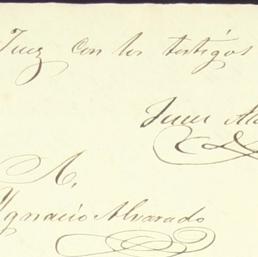 Juez con los testigos
Juan Al
A.
Ygnacio Alvarado